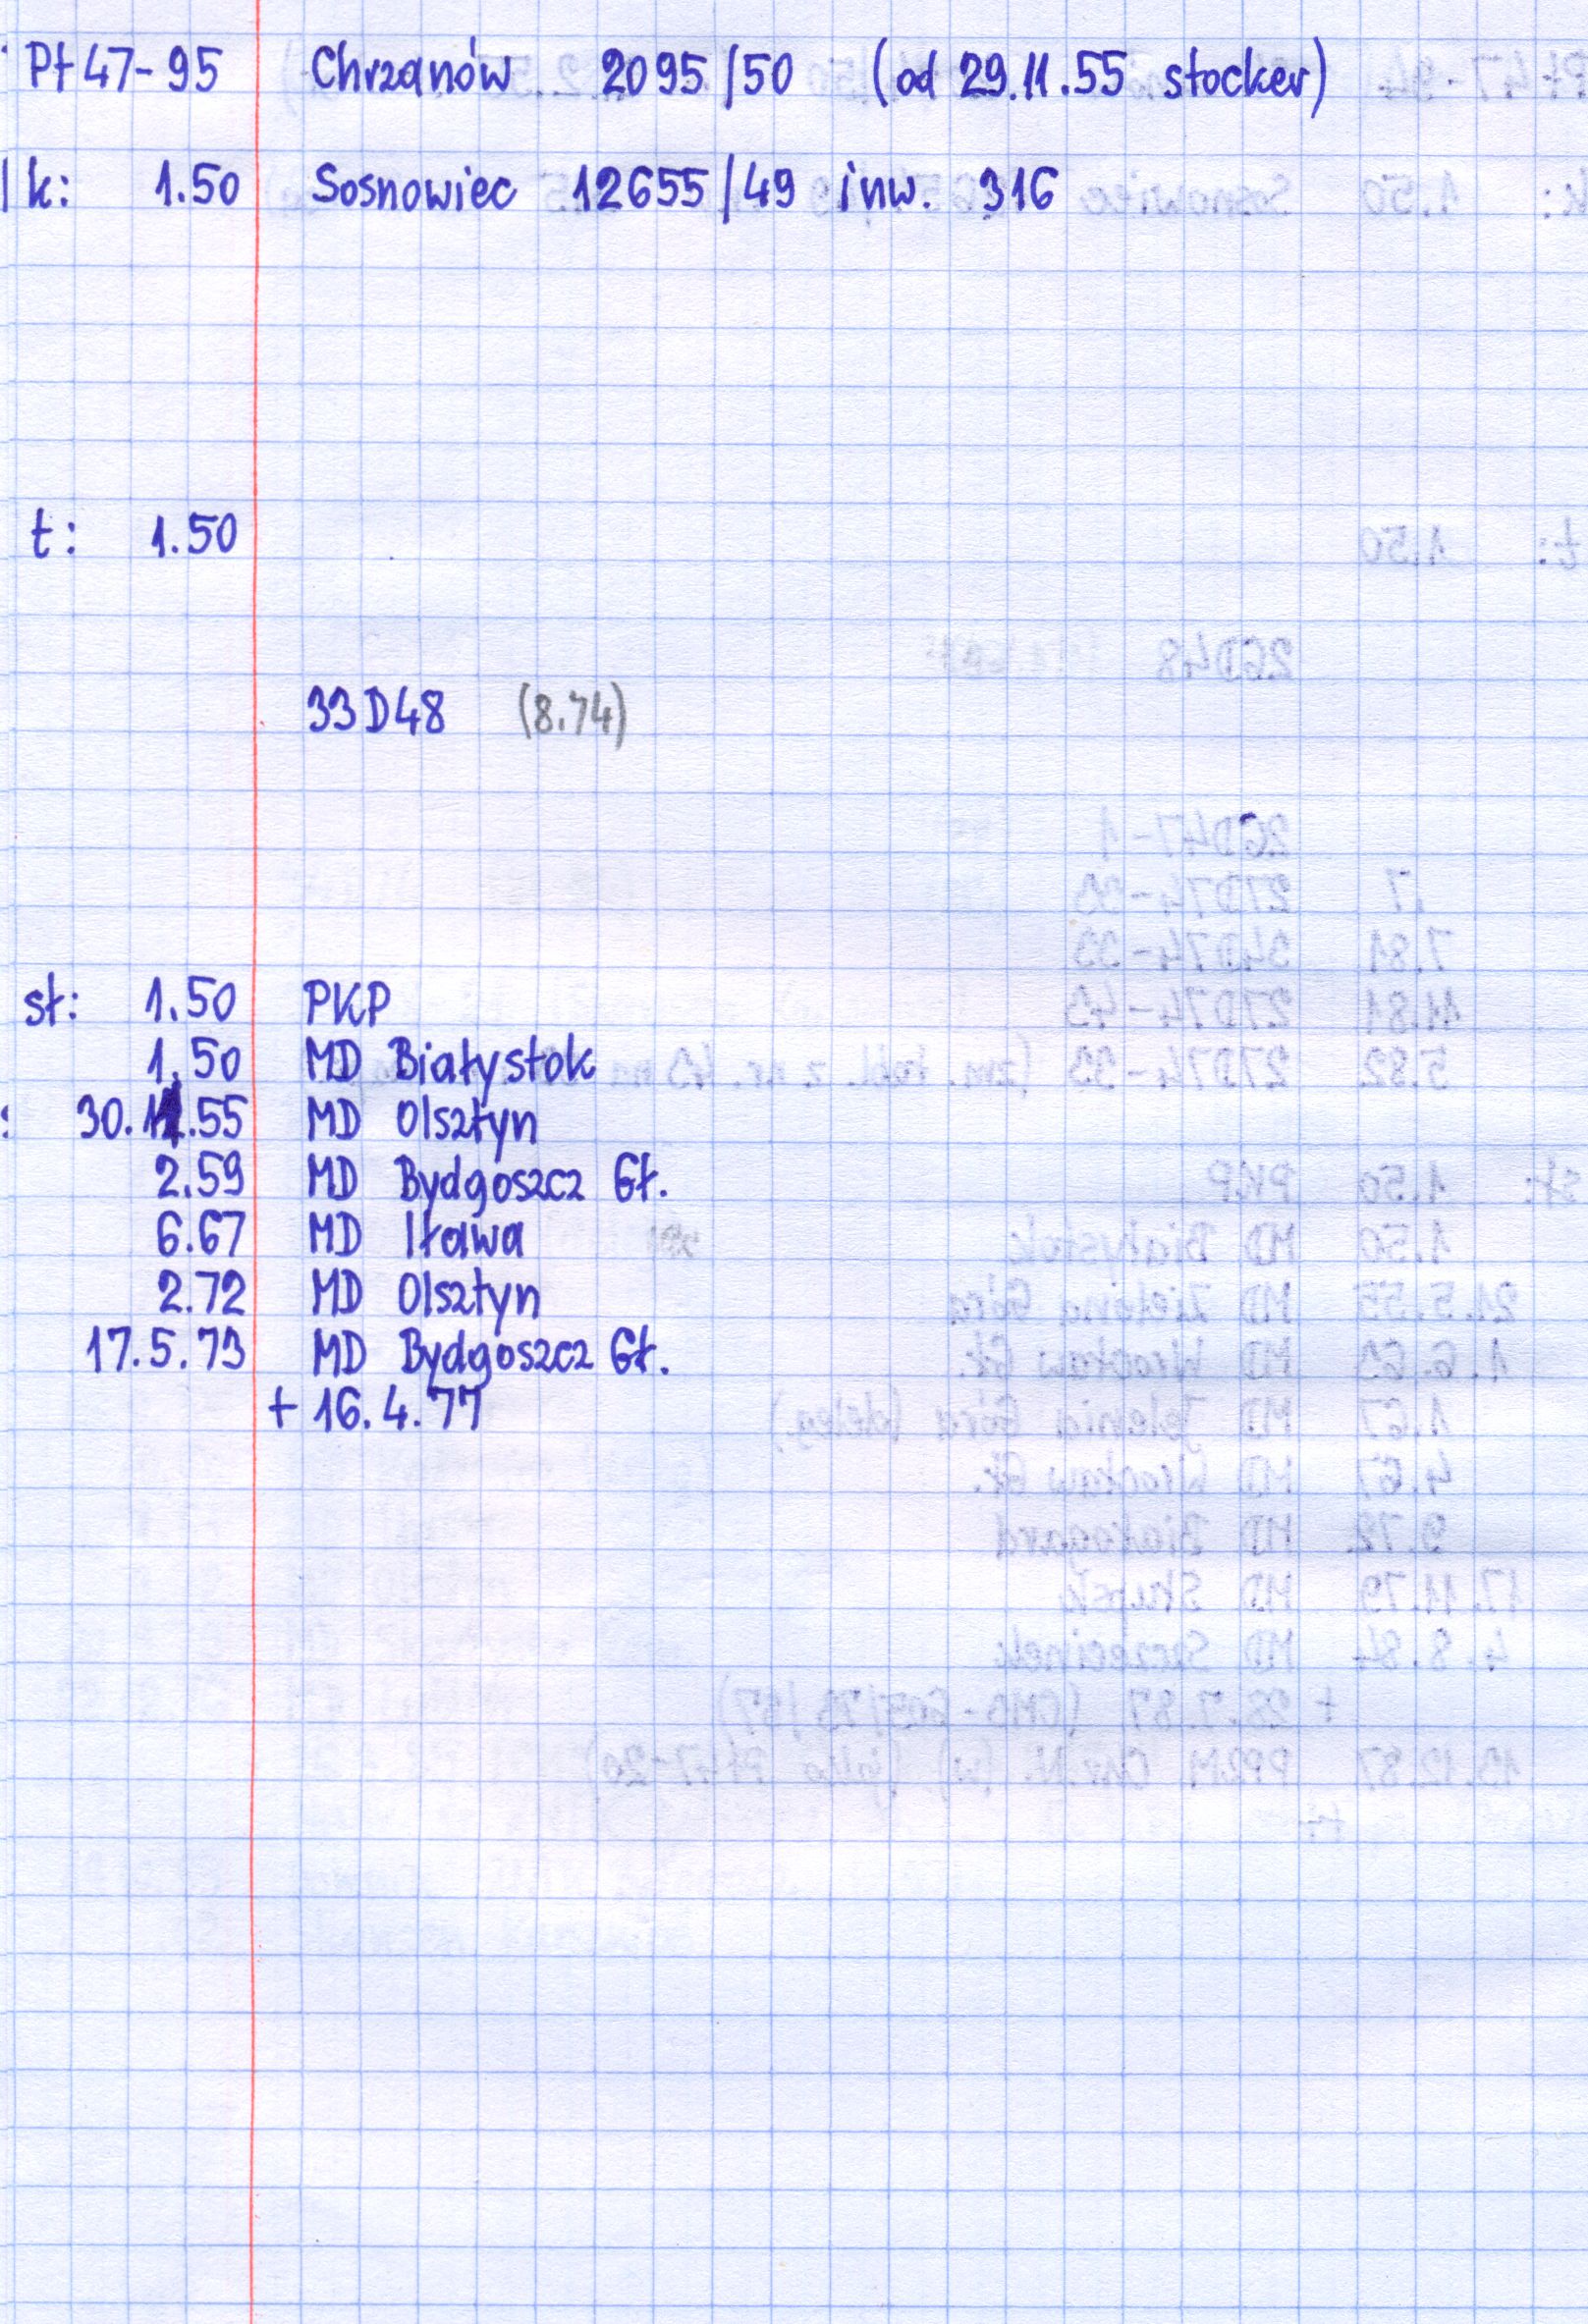 Pt47-95 Chrzanów 2095/50 (od 29.11.55 stocker)
k: 1.50 Sosnowiec 12655/49 inw. 316
t: 1.50
33D48 (8.74)
st: 1.50 PKP
1.50 MD Białystok
30.11.55 MD Olsztyn
2.59 MD Bydgoszcz Gł.
6.67 MD Iława
2.72 MD Olsztyn
17.5.73 MD Bydgoszcz Gł.
+ 16.4.77